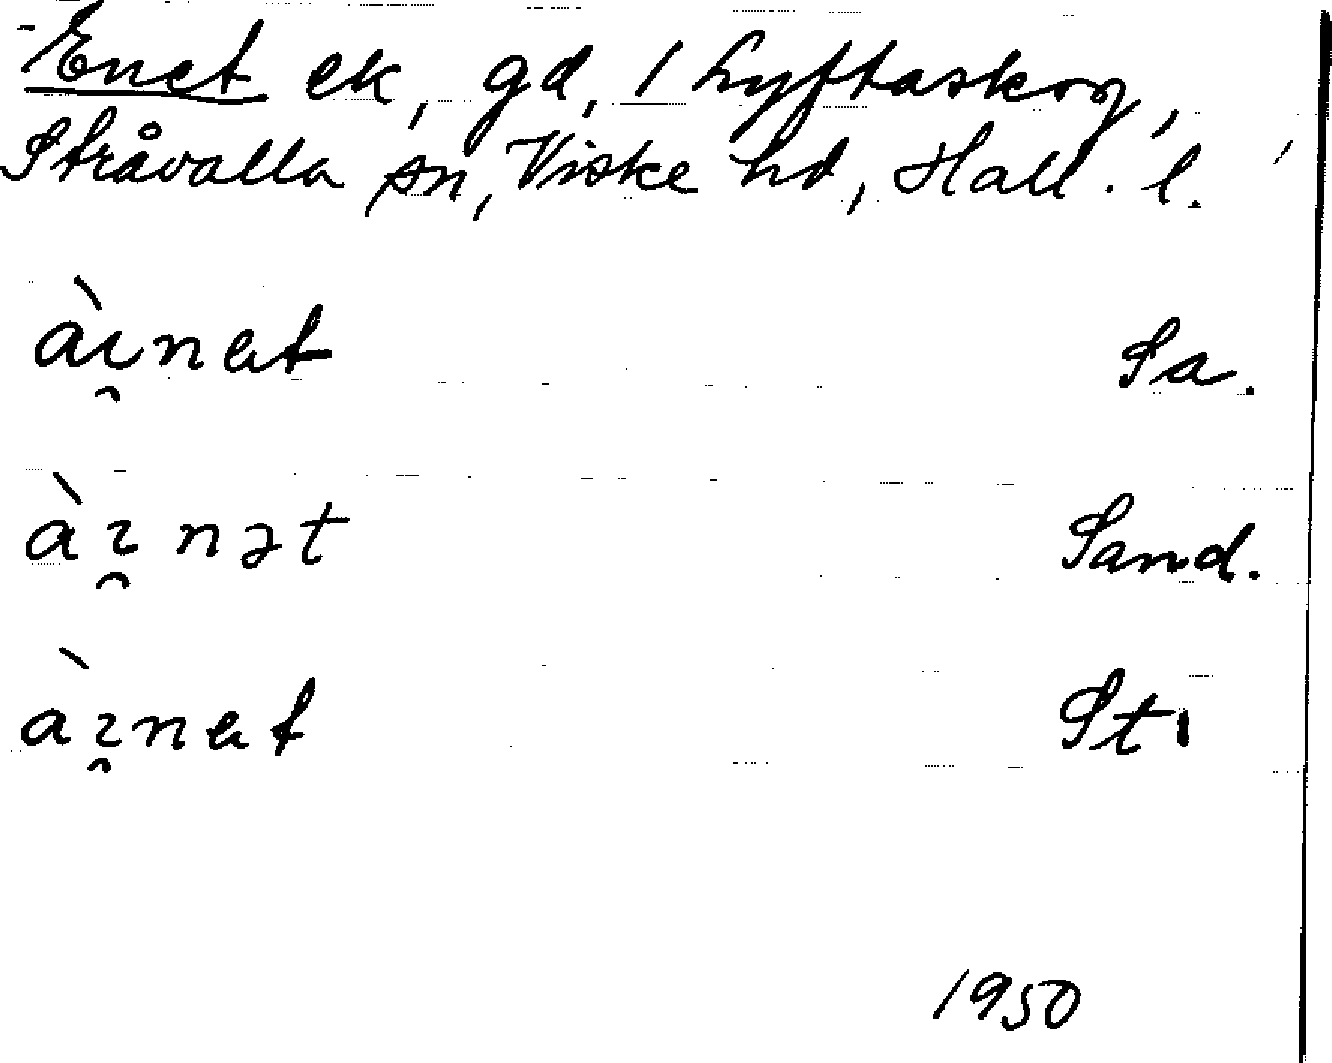 Enet ek, gd, 1 Lyftaskog,
Stråvalla sn, Viske hd, Hall. l.
àı̯nɐt Sa.
àı̯nət Sand.
àı̯nɐt St.
1950